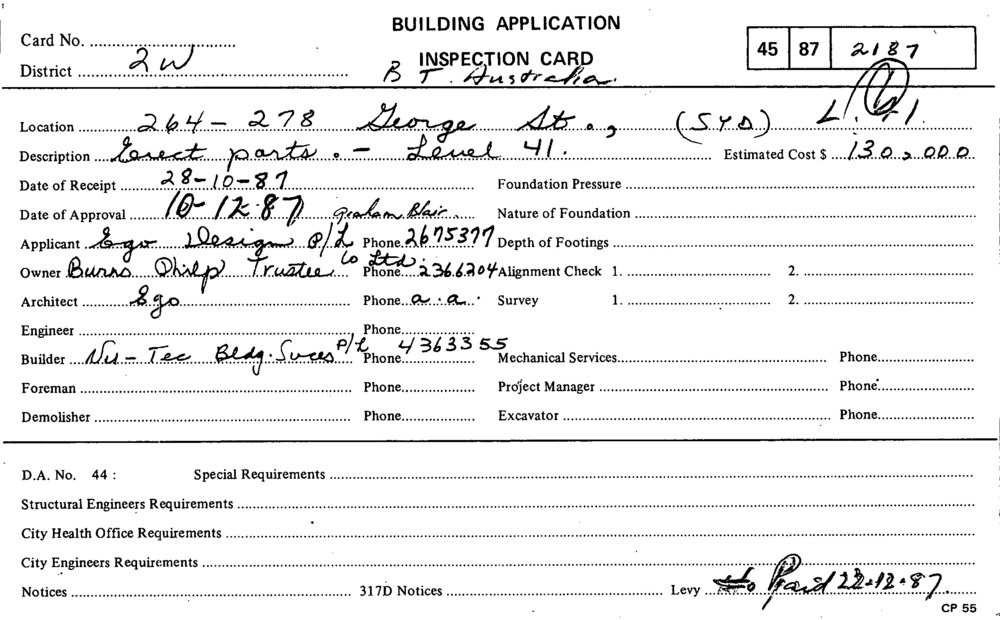 BUILDING APPLICATION
Card No.
INSPECTION CARD
45 87 2187
District 2W
B T. Australia.
L. 41.
Location 264 - 278 George St., (SYD)
Description Erect parts. - Level 41. Estimated Cost $ 130,000
Date of Receipt 28-10-87 Foundation Pressure
Date of Approval 10-12-87 Graham Blair Nature of Foundation
Applicant Ego Design P/L Phone 2675377 Depth of Footings
Owner Burns Philp Trustee Co Ltd. Phone 2366204 Alignment Check 1. 2.
Architect Ego Phone a.a. Survey 1. 2.
Engineer Phone
Builder Nu-Tec Bldg. Suces P/L Phone 4363355 Mechanical Services Phone
Foreman Phone Project Manager Phone
Demolisher Phone Excavator Phone
D.A. No. 44 : Special Requirements
Structural Engineers Requirements
City Health Office Requirements
City Engineers Requirements
Notices 317D Notices Levy Paid 22-12-87
CP 55